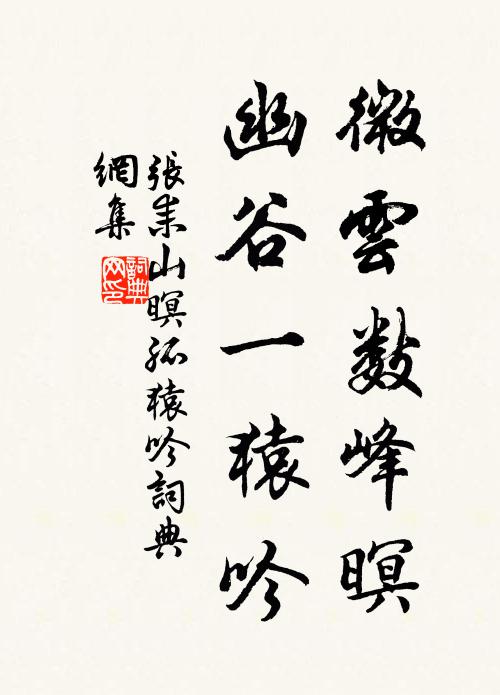 微雲數峰暝
幽谷一猿吟
張耒山暝孤猿吟詞典
網集
詞典網印